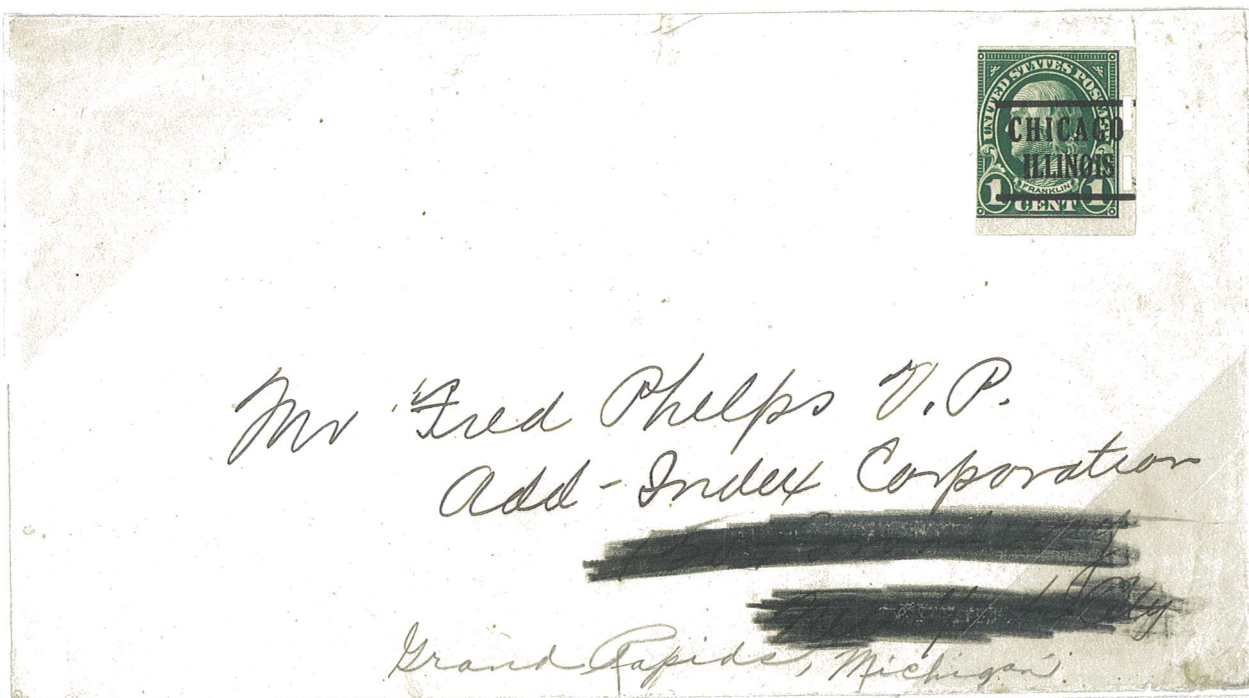 UNITED STATES POSTAGE
CHICAGO
ILLINOIS
FRANKLIN
1 CENT 1
Mr Fred Phelps V.P.
Add-Index Corporation
City
Grand Rapids, Michigan